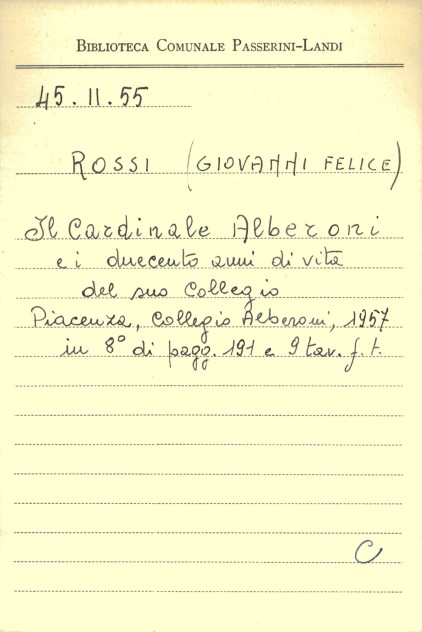 BIBLIOTECA COMUNALE PASSERINI-LANDI
45.II.55
ROSSI (GIOVANNI FELICE)
Il Cardinale Alberoni
e i duecento anni di vita
del suo Collegio
Piacenza, Collegio Alberoni, 1957
in 8° di pagg. 191 e 9 tav. f. t.
C